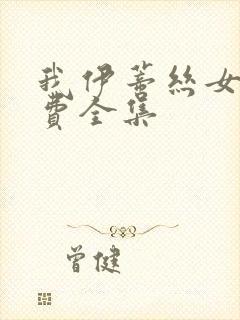 我伊蒂丝女
费全集
曾健